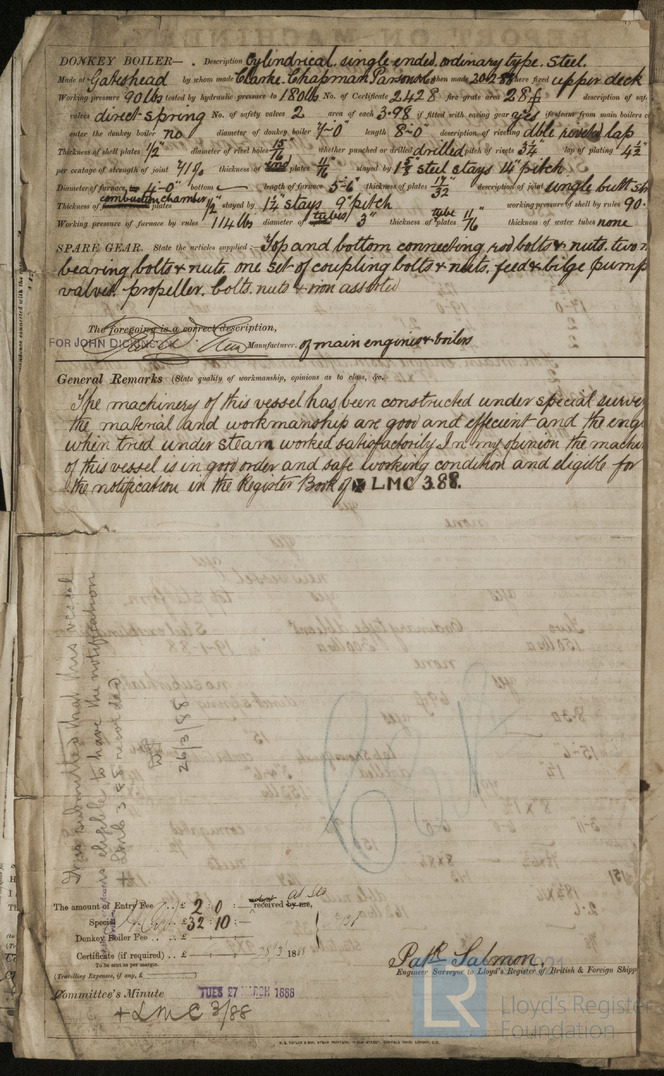 DONKEY BOILER— . Description Cylindrical. single ended. ordinary type. Steel.
Made at Gateshead by whom made Clarke. Chapman Parsons & Co when made 20-2-88 where fixed upper deck
Working pressure 90 lbs tested by hydraulic pressure to 180 lbs No. of Certificate 2428 fire grate area 28 f description of saf
valves direct spring No. of safety valves 2 area of each 3.98 if fitted with easing gear yes if steam from main boilers c
enter the donkey boiler no diameter of donkey boiler 7'-0" length 8'-0" description of riveting dble riveted lap
Thickness of shell plates 1/2" diameter of rivet holes 15/16" whether punched or drilled drilled pitch of rivets 3 1/2" lap of plating 4 1/2"
per centage of strength of joint 71% thickness of end plates 11/16" stayed by 1 5/8" steel stays 14" pitch
Diameter of furnace, 4'-0" bottom length of furnace 5'-6" thickness of plates 17/32" description of joint single butt st
Thickness of combustion chamber plates 1/2" stayed by 1 1/4" stays 9" pitch working pressure of shell by rules 90
Working pressure of furnace by rules 114 lbs diameter of tubes 3" thickness of tube plates 11/16" thickness of water tubes none
SPARE GEAR. State the articles supplied:— Top and bottom connecting rod bolts & nuts. two
bearing bolts & nuts. one set of coupling bolts & nuts. feed & bilge pump
valves. propeller. bolts. nuts & iron assorted
The foregoing is a correct description,
FOR JOHN DICKINSON Manufacturer. of main engines & boilers
General Remarks (State quality of workmanship, opinions as to class, &c.
The machinery of this vessel has been constructed under special survey
the material and workmanship are good and effecient and the eng
when tried under steam worked satisfactorily. In my opinion the machi
of this vessel is in good order and safe working condition and eligible for
the notification in the Register Book of ✠ LMC 3.88.
It is submitted that this vessel
is eligible to have the notification
+ LMC 3.88 recorded
26/3/88
The amount of Entry Fee .. £ 2 : 0 : received by me,
Special .. £ 32 : 10 :
Donkey Boiler Fee .. £
Certificate (if required) .. £ 28/3 1888
To be sent as per margin.
(Travelling Expenses, if any, £ )
Patk. Salmon.
Engineer Surveyor to Lloyd's Register of British & Foreign Shipp
Committee's Minute TUES 27 MARCH 1888
+ LMC 3/88
LR
Lloyd's Register
Foundation